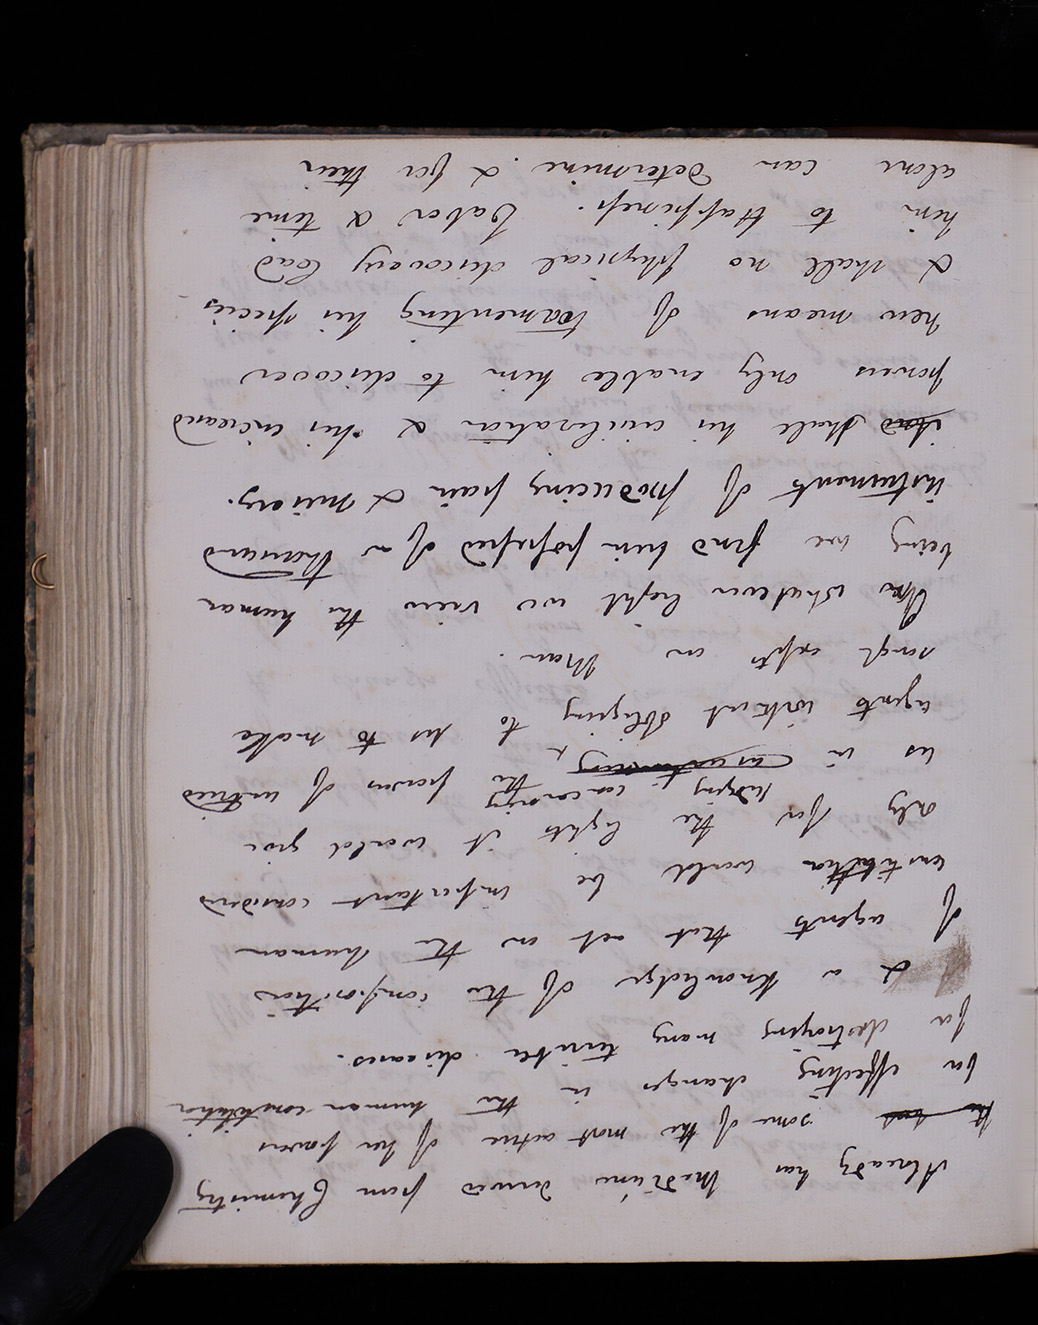 Already has Medicine derived from Chemistry
some of the most active of her powers
for effecting changes in the human constitution
for destroying many terrible diseases.
& a knowledge of the composition
of agents that act on the human
constitution would be important considered
only for the lights it would give
us in judging concerning the powers of untried
agents without obliging to us to make
rough expts on Man.
In whatever light we view the human
being we find him possessed of a thousand
instruments of producing pain & misery.
And shall his civilization & his increased
powers only enable him to discover
new means of tormenting his species
& shall no physical discovery lead
him to Happiness. Labor & time
alone can determine & for their